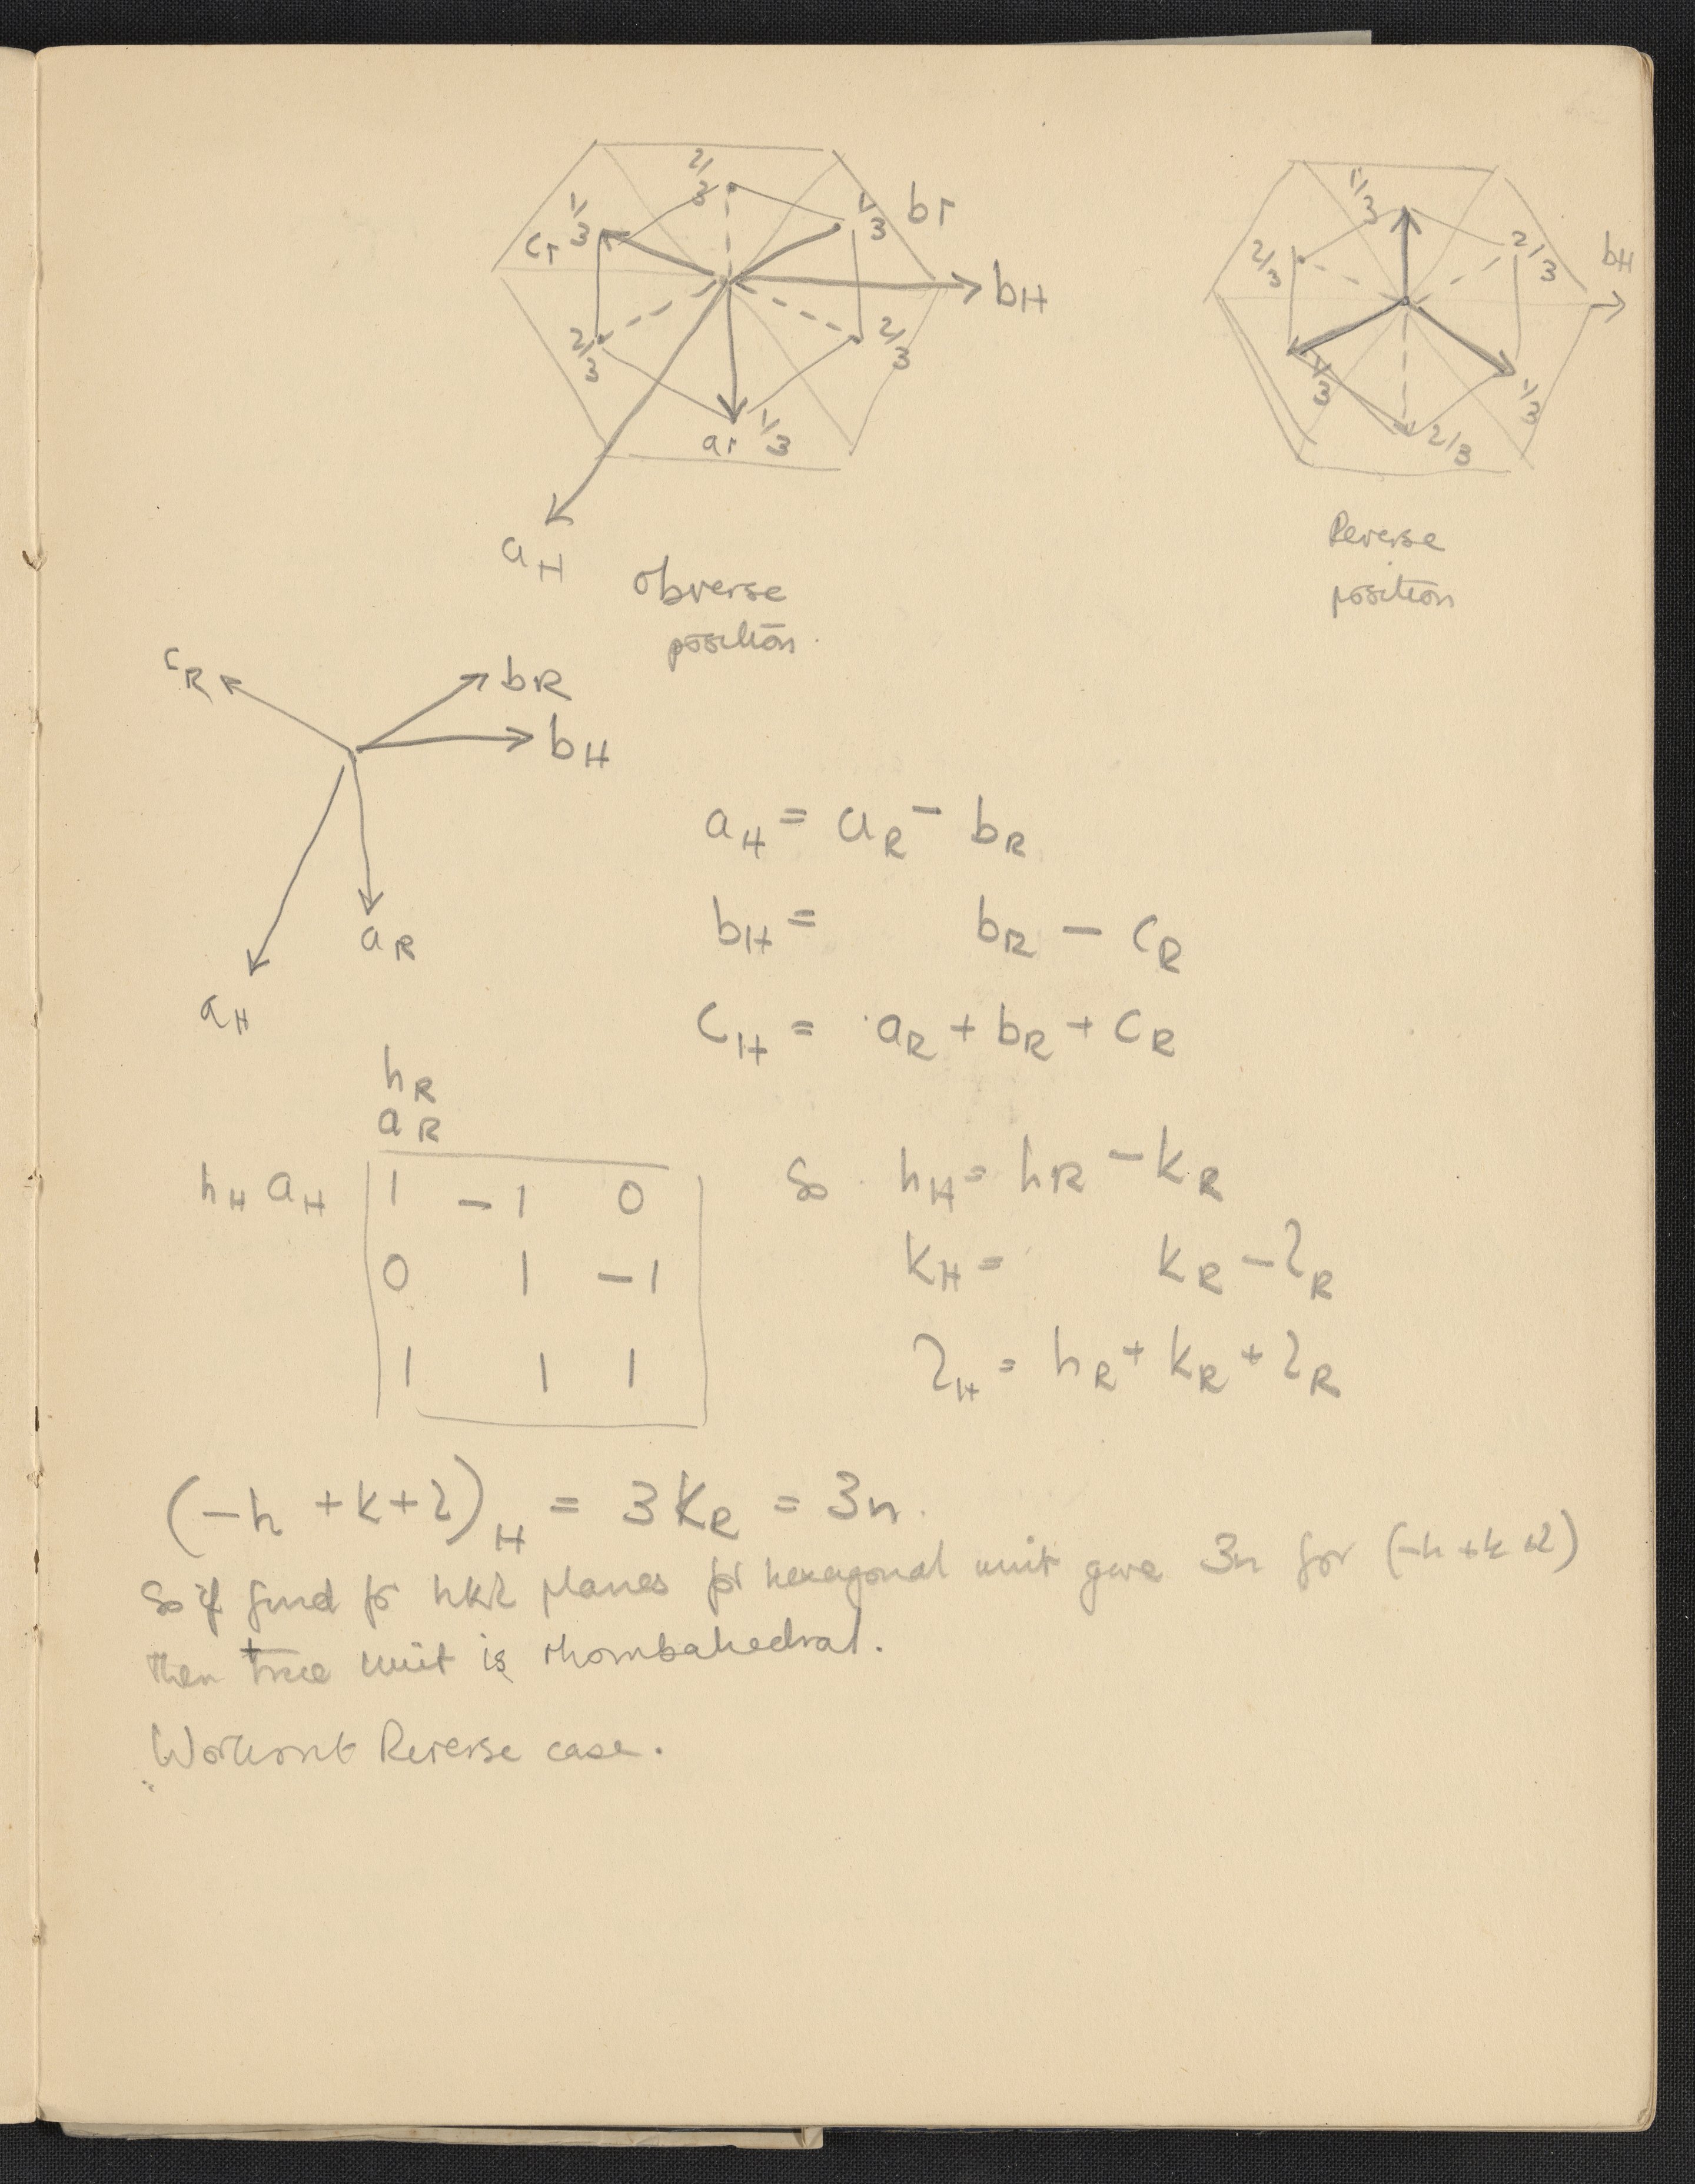 2/3
1/3
cr
1/3
br
bH
2/3
2/3
ar 1/3
aH
obverse
position.
1/3
2/3
2/3
bH
1/3
1/3
2/3
Reverse
position
cR
bR
bH
aR
aH
aH = aR - bR
bH = bR - cR
cH = aR + bR + cR
hR
aR
hH aH 1 -1 0
0 1 -1
1 1 1
So hH = hR - kR
kH = kR - lR
lH = hR + kR + lR
(-h + k + l)H = 3kR = 3n.
So if find for hkl planes for hexagonal unit gave 3n for (-h + k + l)
then true unit is rhombahedral.
Workout Reverse case.